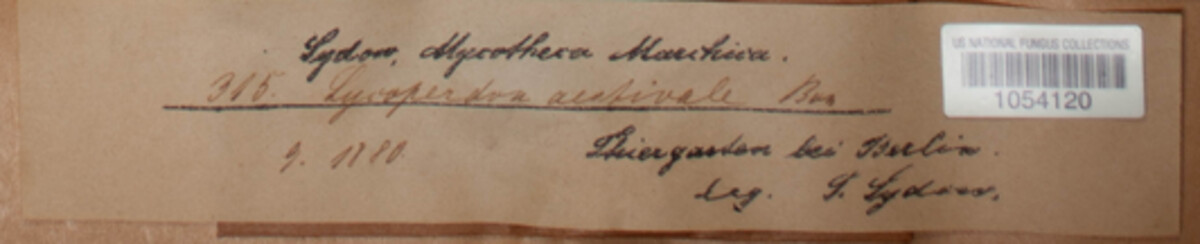 Sydow, Mycotheca Marchica.
315. Lycoperdon aestivale Bon
9. 1880
Thiergarten bei Berlin.
leg. P. Sydow.
US NATIONAL FUNGUS COLLECTIONS
1054120